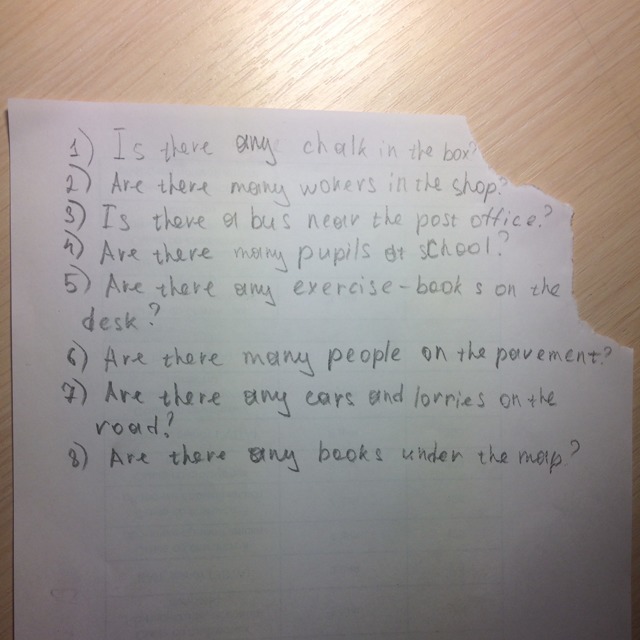 1) Is there any chalk in the box?
2) Are there many wokers in the shop?
3) Is there a bus near the post office?
4) Are there many pupils at school?
5) Are there any exercise-books on the
desk?
6) Are there many people on the pavement?
7) Are there any cars and lorries on the
road?
8) Are there any books under the map?